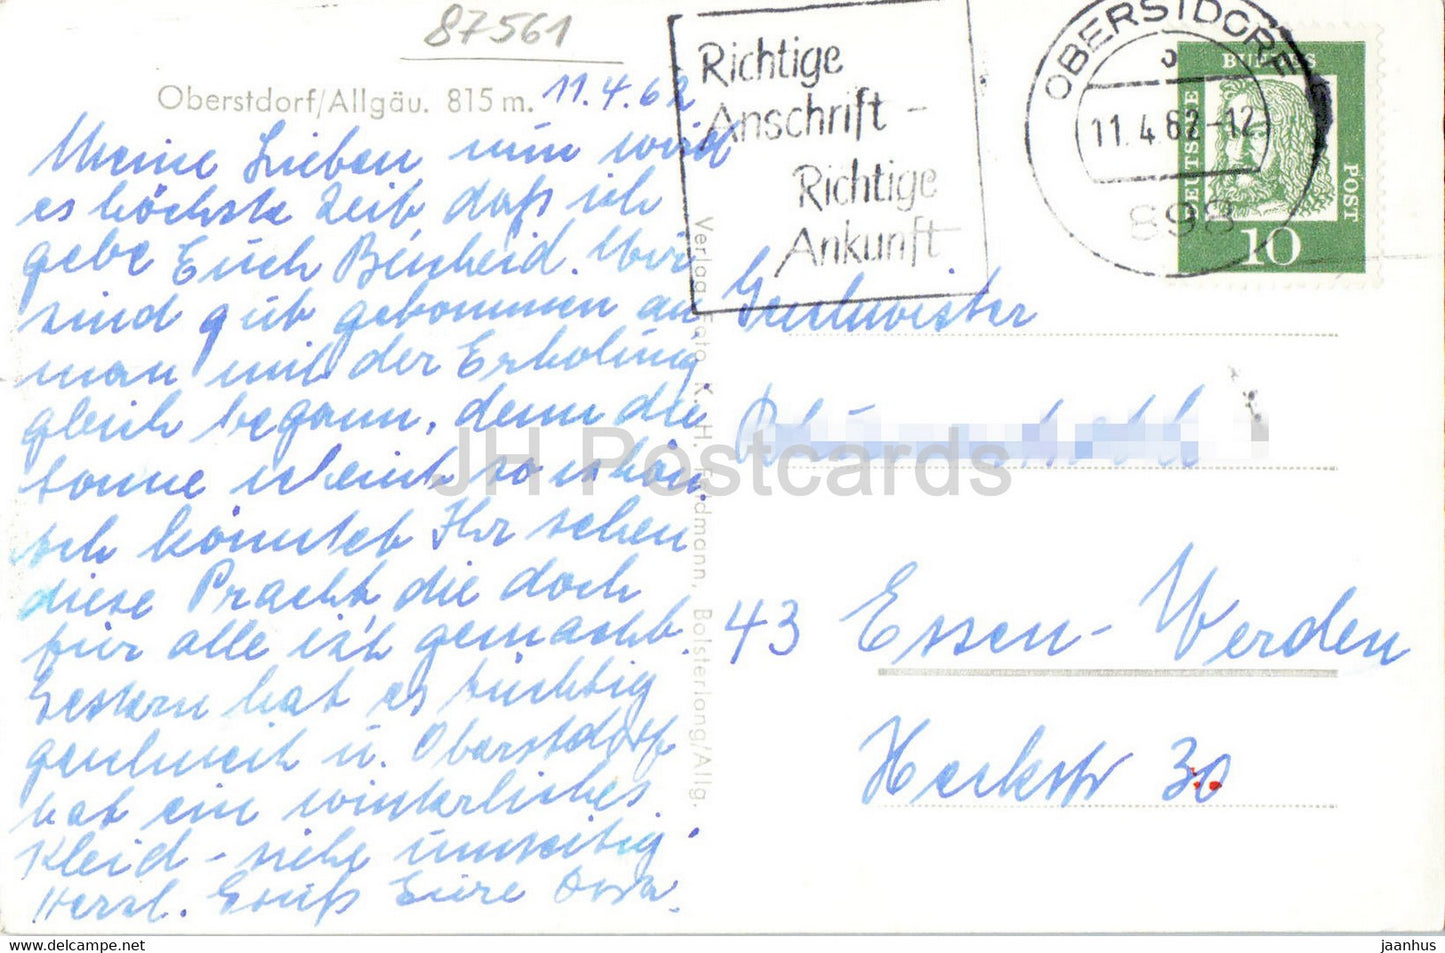 87561
Oberstdorf/Allgäu. 815 m. 11.4.62
Meine Lieben nun wird
es höchste Zeit daß ich
gebe Euch Bescheid. Wir
sind gut gekommen an
man mit der Erholung
gleich begann, denn die
Sonne scheint so schön.
Ach könntet Ihr sehen
diese Pracht die doch
für alle ist gemacht.
Gestern hat es tüchtig
geschneit u. Oberstdorf
hat ein winterliches
Kleid - siehe umseitig.
Herzl. Gruß Eure
Verlag Foto K. H. Feldmann, Bolsterlang/Allg.
Richtige
Anschrift -
Richtige
Ankunft
OBERSTDORF
11.4.62-12
898
DEUTSCHE
BUNDES
POST
10
Geschwister
43 Essen-Werden
Heckstr 30
JH Postcards
https://www.oldthing.com
jaanhus